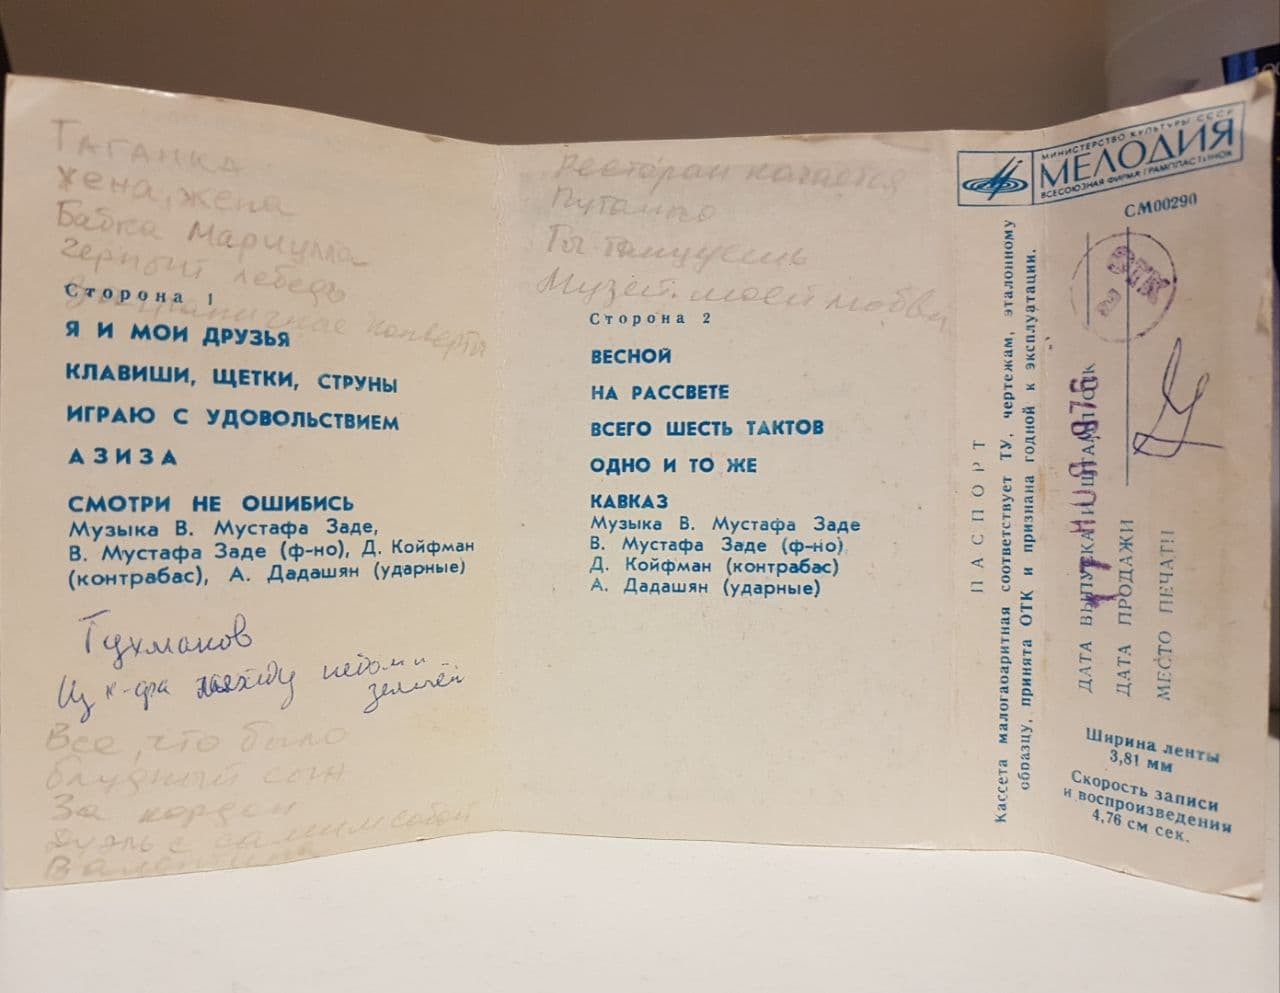 Таганка
Жена, жена
Бабка Мариула
Черный лебедь
Заграничные конверты
Сторона 1
Я И МОИ ДРУЗЬЯ
КЛАВИШИ, ЩЕТКИ, СТРУНЫ
ИГРАЮ С УДОВОЛЬСТВИЕМ
АЗИЗА
СМОТРИ НЕ ОШИБИСЬ
Музыка В. Мустафа Заде,
В. Мустафа Заде (ф-но), Д. Койфман
(контрабас), А. Дадашян (ударные)
Тухманов
Из к-фа
землей
Все, что было
блудный сын
За кордон
Дуэль с самим собой
Валентина
Ресторан качается
Путанка
Ты танцуешь
Музей моей любви
Сторона 2
ВЕСНОЙ
НА РАССВЕТЕ
ВСЕГО ШЕСТЬ ТАКТОВ
ОДНО И ТО ЖЕ
КАВКАЗ
Музыка В. Мустафа Заде
В. Мустафа Заде (ф-но)
Д. Койфман (контрабас)
А. Дадашян (ударные)
МИНИСТЕРСТВО КУЛЬТУРЫ СССР
МЕЛОДИЯ
ВСЕСОЮЗНАЯ ФИРМА ГРАМПЛАСТИНОК
СМ00290
ПАСПОРТ
Кассета малогаоаритная соответствует ТУ, чертежам, эталонному
образцу, принята ОТК и признана годной к эксплуатации.
ДАТА ВЫПУСКА И ШТАМП ОТК
17 НОЯ 976
ДАТА ПРОДАЖИ
МЕСТО ПЕЧАТИ
Ширина ленты
3,81 мм
Скорость записи
и воспроизведения
4,76 см сек.